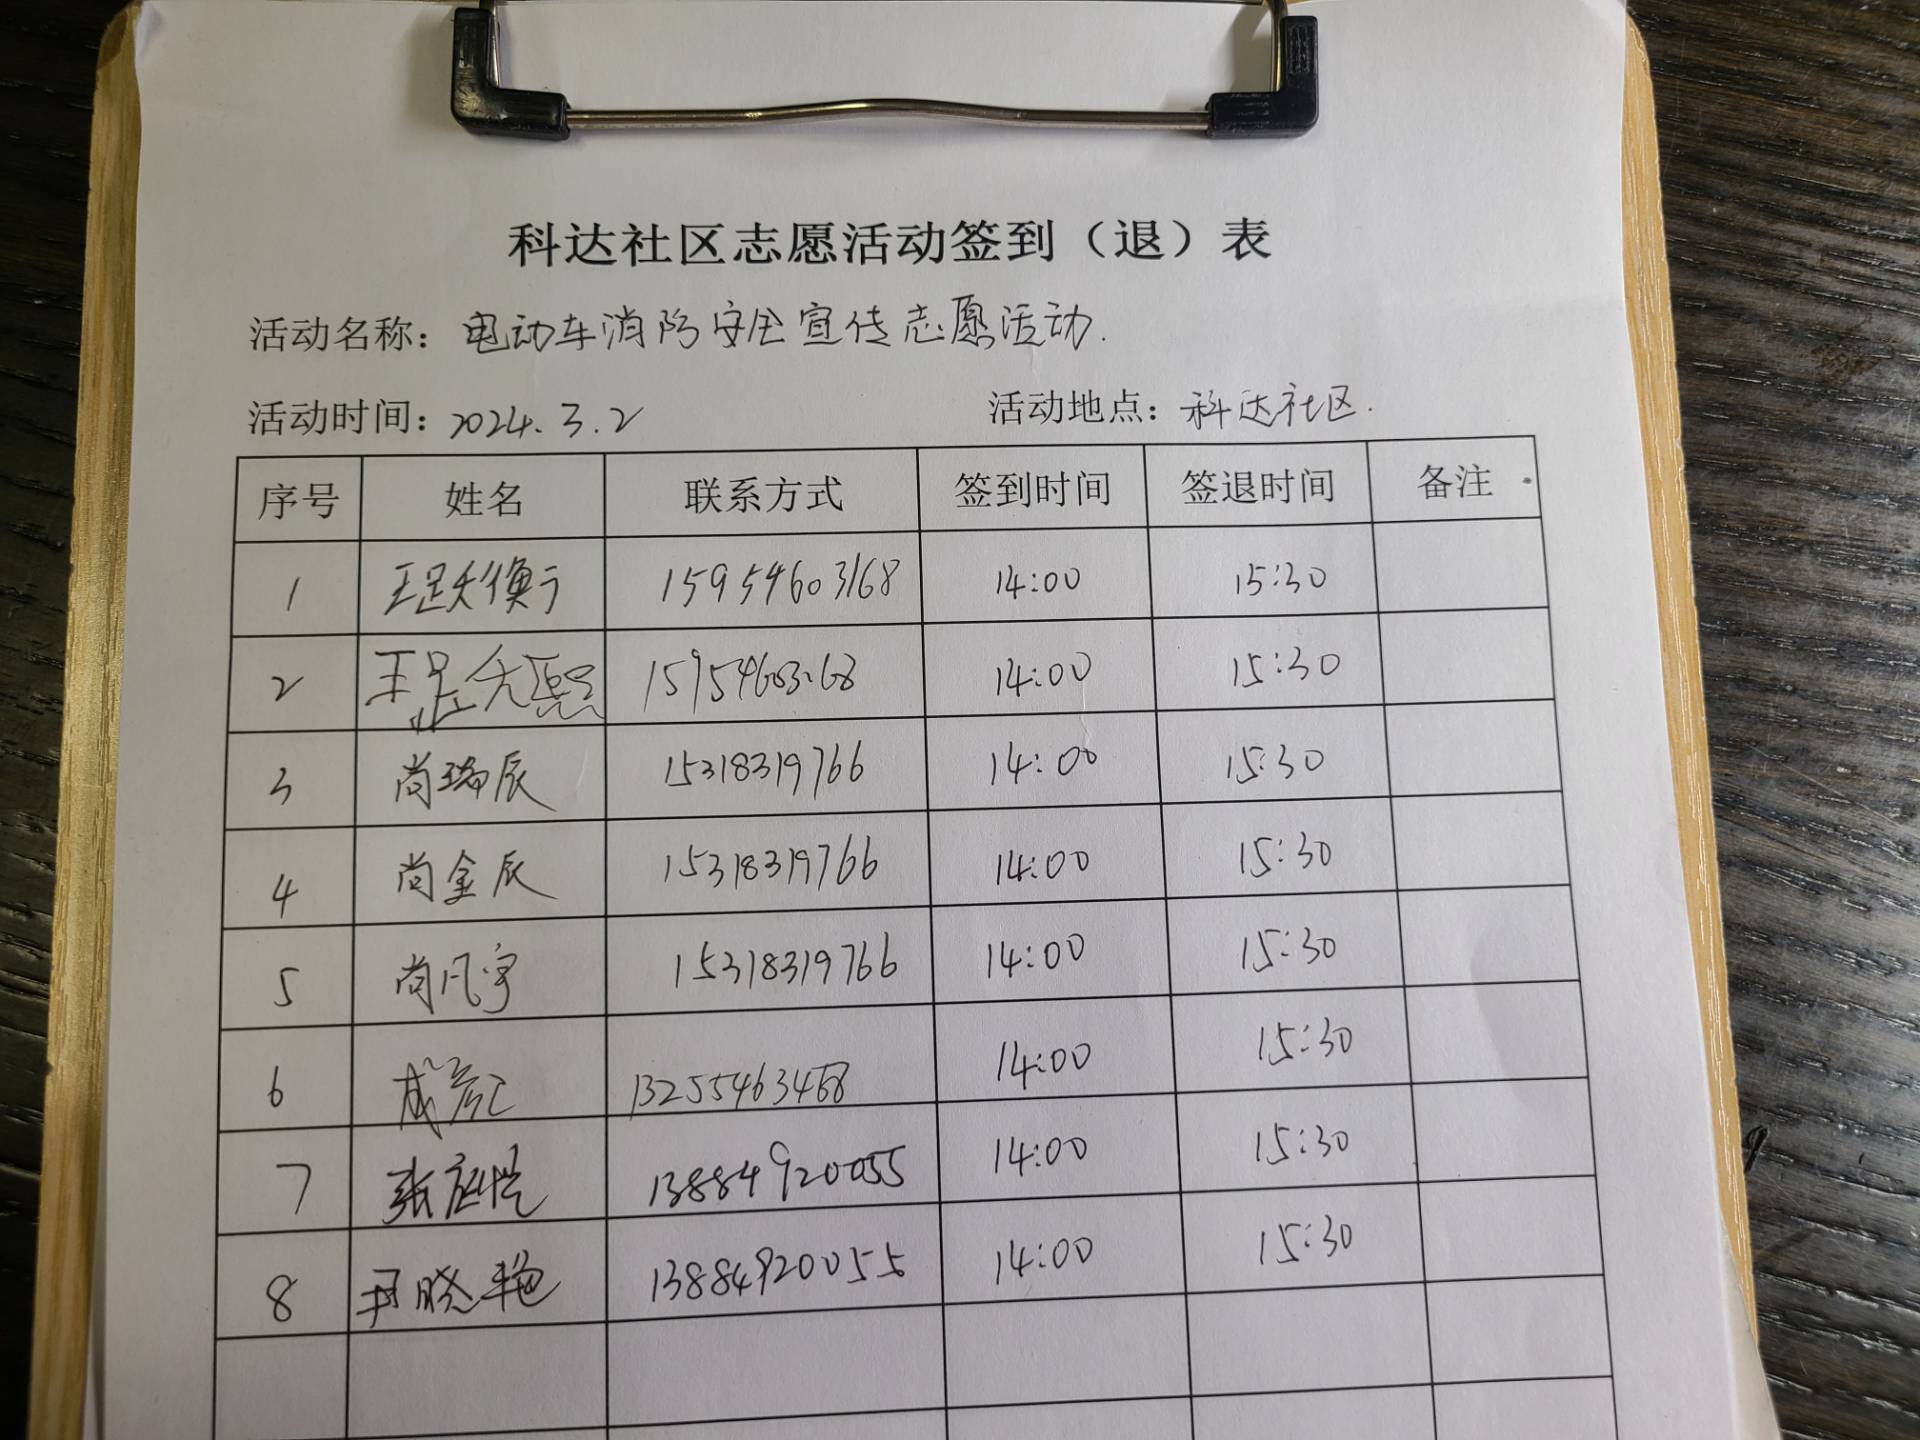 科达社区志愿活动签到（退）表
活动名称：电动车消防安全宣传志愿活动.
活动时间：2024.3.2 活动地点：科达社区.
序号 姓名 联系方式 签到时间 签退时间 备注
1 王 15954603168 14:00 15:30
2 王 14:00 15:30
3 尚瑞辰 15318319766 14:00 15:30
4 尚金辰 15318319766 14:00 15:30
5 尚凡宇 15318319766 14:00 15:30
6 成彦汇 13255463468 14:00 15:30
7 张庭恺 13884920055 14:00 15:30
8 尹晓艳 13884920055 14:00 15:30